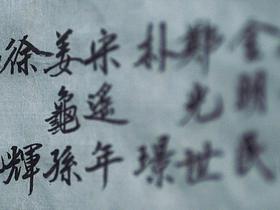 金明民
鄭光世
朴璟
宋遙年
姜龜孫
徐輝